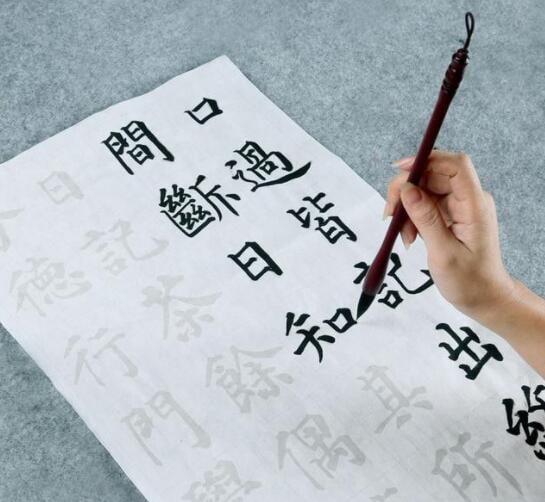 口過皆記出終
間斷日知其所
日記茶餘偶
分德行門學